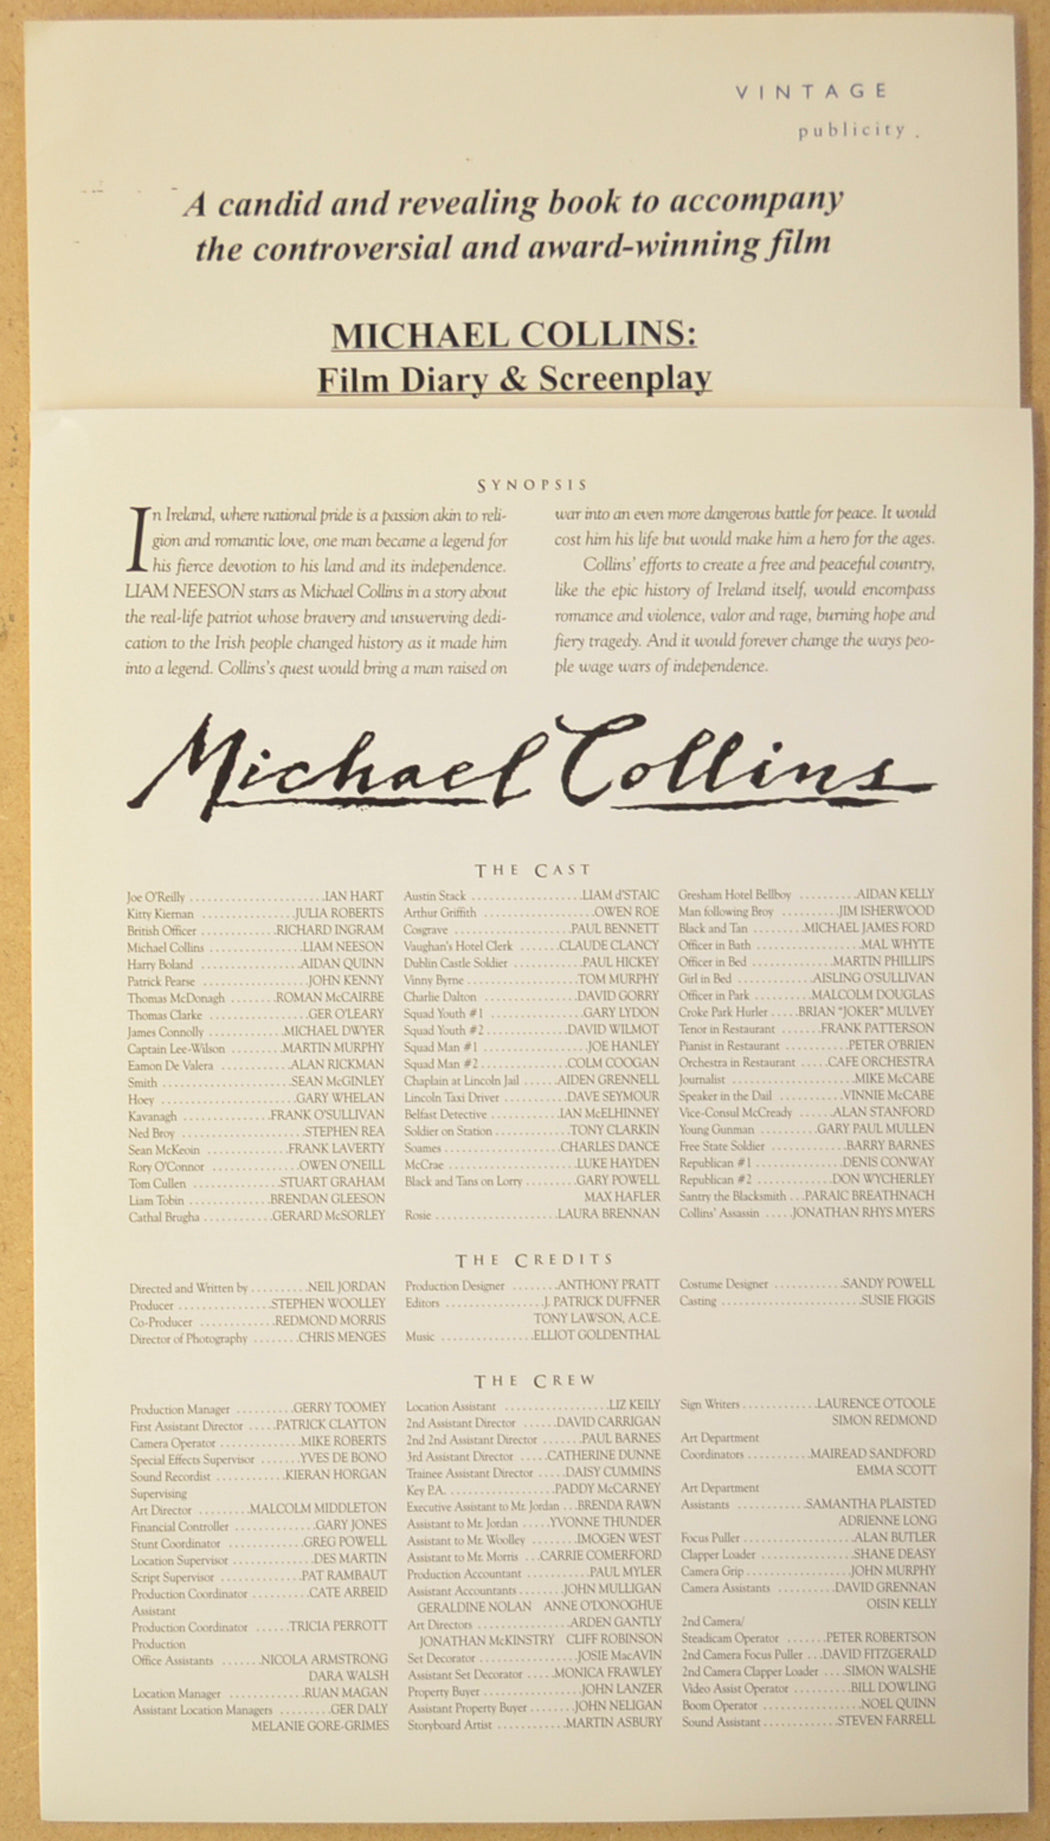 VINTAGE
publicity .
A candid and revealing book to accompany
the controversial and award-winning film
MICHAEL COLLINS:
Film Diary & Screenplay
SYNOPSIS
In Ireland, where national pride is a passion akin to reli-
gion and romantic love, one man became a legend for
his fierce devotion to his land and its independence.
LIAM NEESON stars as Michael Collins in a story about
the real-life patriot whose bravery and unswerving dedi-
cation to the Irish people changed history as it made him
into a legend. Collins's quest would bring a man raised on
war into an even more dangerous battle for peace. It would
cost him his life but would make him a hero for the ages.
Collins' efforts to create a free and peaceful country,
like the epic history of Ireland itself, would encompass
romance and violence, valor and rage, burning hope and
fiery tragedy. And it would forever change the ways peo-
ple wage wars of independence.
Michael Collins
THE CAST
Joe O'Reilly ......................IAN HART
Kitty Kiernan ...............JULIA ROBERTS
British Officer ............RICHARD INGRAM
Michael Collins ...............LIAM NEESON
Harry Boland ................AIDAN QUINN
Patrick Pearse ..................JOHN KENNY
Thomas McDonagh ........ROMAN McCAIRBE
Thomas Clarke .................GER O'LEARY
James Connolly .............MICHAEL DWYER
Captain Lee-Wilson .........MARTIN MURPHY
Eamon De Valera ............ALAN RICKMAN
Smith .....................SEAN McGINLEY
Hoey .......................GARY WHELAN
Kavanagh ...............FRANK O'SULLIVAN
Ned Broy .....................STEPHEN REA
Sean McKeoin ..............FRANK LAVERTY
Rory O'Connor ...............OWEN O'NEILL
Tom Cullen ...............STUART GRAHAM
Liam Tobin ..............BRENDAN GLEESON
Cathal Brugha ...........GERARD McSORLEY
Austin Stack ..................LIAM d'STAIC
Arthur Griffith ..................OWEN ROE
Cosgrave ....................PAUL BENNETT
Vaughan's Hotel Clerk .......CLAUDE CLANCY
Dublin Castle Soldier ...........PAUL HICKEY
Vinny Byrne ..................TOM MURPHY
Charlie Dalton .................DAVID GORRY
Squad Youth #1 ................GARY LYDON
Squad Youth #2 .............DAVID WILMOT
Squad Man #1 ..................JOE HANLEY
Squad Man #2 ..............COLM COOGAN
Chaplain at Lincoln Jail ......AIDEN GRENNELL
Lincoln Taxi Driver ...........DAVE SEYMOUR
Belfast Detective ............IAN McELHINNEY
Soldier on Station ............TONY CLARKIN
Soames .......................CHARLES DANCE
McCrae .....................LUKE HAYDEN
Black and Tans on Lorry ........GARY POWELL
MAX HAFLER
Rosie ....................LAURA BRENNAN
Gresham Hotel Bellboy ...........AIDAN KELLY
Man following Broy ..........JIM ISHERWOOD
Black and Tan .........MICHAEL JAMES FORD
Officer in Bath ..................MAL WHYTE
Officer in Bed .............MARTIN PHILLIPS
Girl in Bed ..............AISLING O'SULLIVAN
Officer in Park .........MALCOLM DOUGLAS
Croke Park Hurler .....BRIAN "JOKER" MULVEY
Tenor in Restaurant .......FRANK PATTERSON
Pianist in Restaurant ...........PETER O'BRIEN
Orchestra in Restaurant .....CAFE ORCHESTRA
Journalist ....................MIKE McCABE
Speaker in the Dail ...........VINNIE McCABE
Vice-Consul McCready ......ALAN STANFORD
Young Gunman .........GARY PAUL MULLEN
Free State Soldier ............BARRY BARNES
Republican #1 ..............DENIS CONWAY
Republican #2 ............DON WYCHERLEY
Santry the Blacksmith ...PARAIC BREATHNACH
Collins' Assassin .....JONATHAN RHYS MYERS
THE CREDITS
Directed and Written by .........NEIL JORDAN
Producer ...............STEPHEN WOOLLEY
Co-Producer ..............REDMOND MORRIS
Director of Photography ........CHRIS MENGES
Production Designer ........ANTHONY PRATT
Editors .................J. PATRICK DUFFNER
TONY LAWSON, A.C.E.
Music ...............ELLIOT GOLDENTHAL
Costume Designer ............SANDY POWELL
Casting .......................SUSIE FIGGIS
THE CREW
Production Manager ..........GERRY TOOMEY
First Assistant Director .....PATRICK CLAYTON
Camera Operator .............MIKE ROBERTS
Special Effects Supervisor .......YVES DE BONO
Sound Recordist ...........KIERAN HORGAN
Supervising
Art Director ........MALCOLM MIDDLETON
Financial Controller .............GARY JONES
Stunt Coordinator .............GREG POWELL
Location Supervisor .............DES MARTIN
Script Supervisor .............PAT RAMBAUT
Production Coordinator .........CATE ARBEID
Assistant
Production Coordinator ......TRICIA PERROTT
Production
Office Assistants .......NICOLA ARMSTRONG
DARA WALSH
Location Manager ............RUAN MAGAN
Assistant Location Managers .........GER DALY
MELANIE GORE-GRIMES
Location Assistant .................LIZ KEILY
2nd Assistant Director ......DAVID CARRIGAN
2nd 2nd Assistant Director .......PAUL BARNES
3rd Assistant Director .....CATHERINE DUNNE
Trainee Assistant Director .....DAISY CUMMINS
Key P.A. .................PADDY McCARNEY
Executive Assistant to Mr. Jordan ...BRENDA RAWN
Assistant to Mr. Jordan .....YVONNE THUNDER
Assistant to Mr. Woolley ........IMOGEN WEST
Assistant to Mr. Morris ...CARRIE COMERFORD
Production Accountant ...........PAUL MYLER
Assistant Accountants ........JOHN MULLIGAN
GERALDINE NOLAN ANNE O'DONOGHUE
Art Directors ...............ARDEN GANTLY
JONATHAN McKINSTRY CLIFF ROBINSON
Set Decorator ..............JOSIE MacAVIN
Assistant Set Decorator .....MONICA FRAWLEY
Property Buyer ................JOHN LANZER
Assistant Property Buyer ........JOHN NELIGAN
Storyboard Artist ...........MARTIN ASBURY
Sign Writers ............LAURENCE O'TOOLE
SIMON REDMOND
Art Department
Coordinators ...........MAIREAD SANDFORD
EMMA SCOTT
Art Department
Assistants ...........SAMANTHA PLAISTED
ADRIENNE LONG
Focus Puller ..................ALAN BUTLER
Clapper Loader ...............SHANE DEASY
Camera Grip .................JOHN MURPHY
Camera Assistants .........DAVID GRENNAN
OISIN KELLY
2nd Camera/
Steadicam Operator .......PETER ROBERTSON
2nd Camera Focus Puller ...DAVID FITZGERALD
2nd Camera Clapper Loader ....SIMON WALSHE
Video Assist Operator ..........BILL DOWLING
Boom Operator .................NOEL QUINN
Sound Assistant ............STEVEN FARRELL